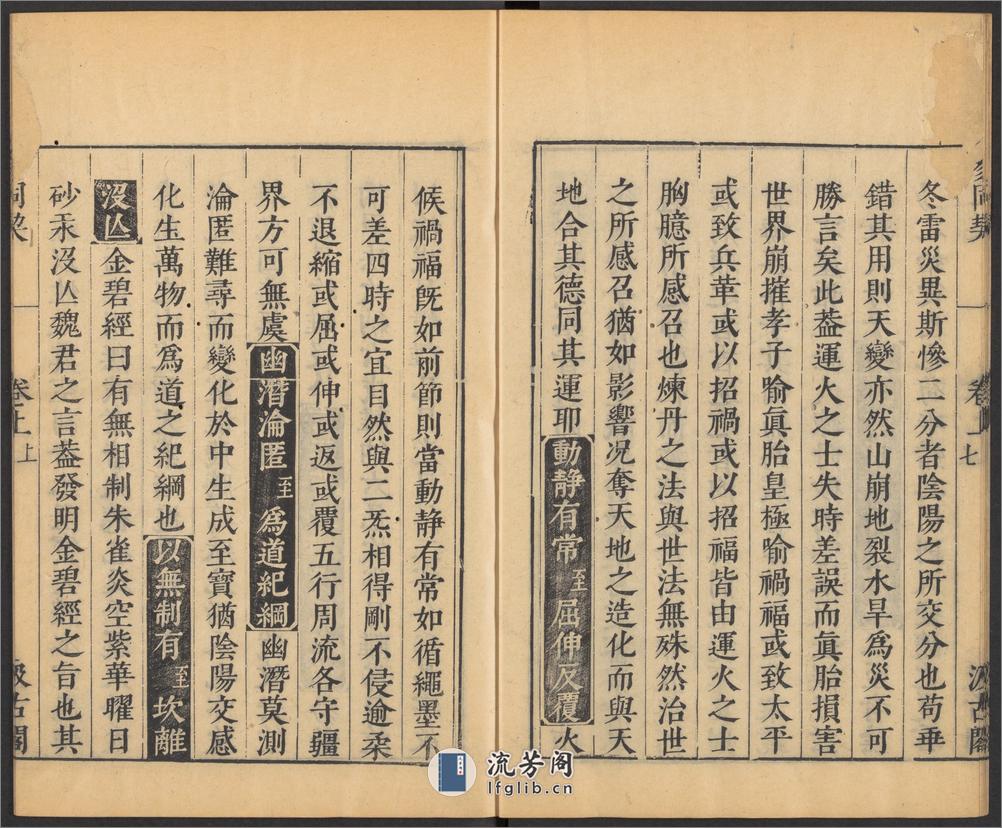 冬雷災異斯慘二分者陰陽之所交分也苟乖
錯其用則天變亦然山崩地裂水旱爲災不可
勝言矣此葢運火之士失時差誤而眞胎損害
世界崩摧孝子喻眞胎皇極喻禍福或致太平
或致兵革或以招禍或以招福皆由運火之士
胸臆所感召也煉丹之法與世法無殊然治世
之所感召猶如影響况奪天地之造化而與天
地合其德同其運耶動静有常至屈伸反覆火
候禍福旣如前節則當動靜有常如循繩墨不
可差四時之宜目然與二炁相得剛不侵逾柔
不退縮或屈或伸或返或覆五行周流各守疆
界方可無虞幽潛淪匿至爲道紀綱幽潛莫測
淪匿難尋而變化於中生成至寶猶陰陽交感
化生萬物而爲道之紀綱也以無制有至坎離
沒亾金碧經曰有無相制朱雀炎空紫華曜日
砂汞沒亾魏君之言葢發明金碧經之旨也其
卷上
七
汲古閣
卷上上
汲古閣
流芳阁
lfglib.cn